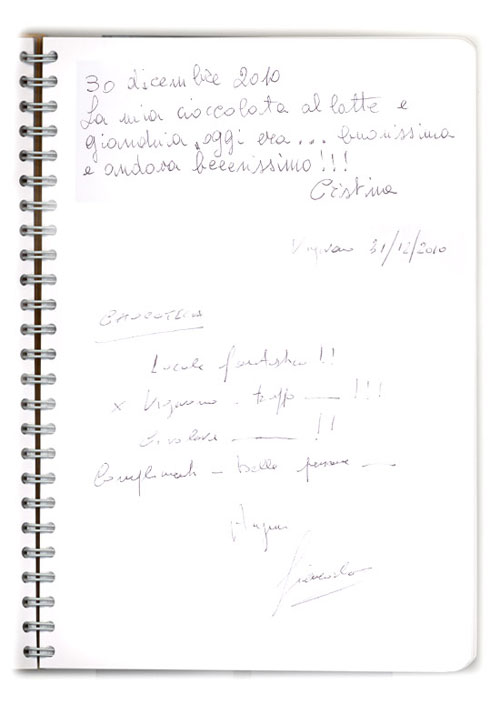 30 dicembre 2010
La mia cioccolata al latte e
gianduia, oggi era... buonissima
e andava beeenissimo!!!
Cristina
Vigevano 31/12/2010
Locale fantastico!!
x Vigevano - troppo !!!
!!
Complimenti - belle persone
Auguri
Giancarlo